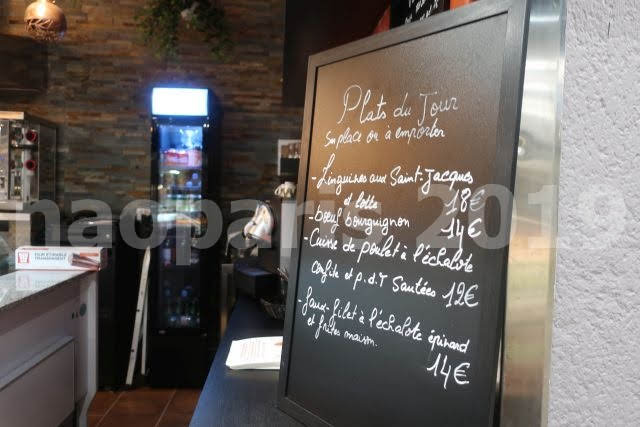 Plats du Jour
Sur place ou à emporter
- Linguines aux Saint-Jacques
et lotte 18€
- bœuf bourguignon 14€
- Cuisse de poulet à l'échalote
confite et p.d.T Sautées 12€
- faux-filet à l'échalote épinard
et frites maison.
14€
FILM ETIRABLE
TRANSPARENT
naoparis 2019